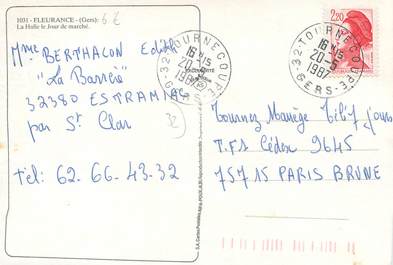 1031 - FLEURANCE - (Gers) : 6 €
La Halle le Jour de marché.
Mme BERTHALON Edith
"La Barrère"
32380 ESTRAMIAC
par St Clar
32
tél: 62.66.43.32
32-TOURNECOUPE-GERS
16H15
20-5
1987
32-TOURNECOUPE-GERS
16H15
20-5
1987
2,20
Tournez Manège Télé 7 jours
T.F1 Cédex 9645
75715 PARIS BRUNE